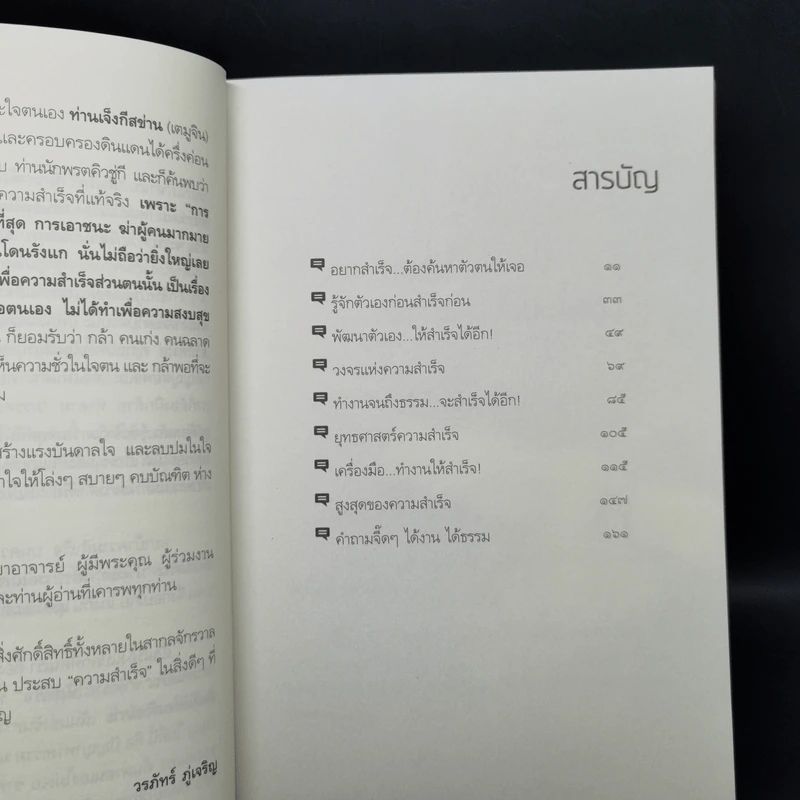 ะใจตนเอง ท่านเจ็งกีสข่าน (เตมูจิน)
และครอบครองดินแดนได้ครึ่งค่อน
ท่านนักพรตคิวชู่กี และก็ค้นพบว่า
ความสำเร็จที่แท้จริง เพราะ “การ
ที่สุด การเอาชนะ ฆ่าผู้คนมากมาย
โดนรังแก นั่นไม่ถือว่ายิ่งใหญ่เลย
พื่อความสำเร็จส่วนตนนั้น เป็นเรื่อง
อตนเอง ไม่ได้ทำเพื่อความสงบสุข
ก็ยอมรับว่า กล้า คนเก่ง คนฉลาด
ห็นความชั่วในใจตน และ กล้าพอที่จะ
ม
สร้างแรงบันดาลใจ และลบปมในใจ
ใจให้โล่งๆ สบายๆ คบบัณฑิต ห่าง
อาจารย์ ผู้มีพระคุณ ผู้ร่วมงาน
ละท่านผู้อ่านที่เคารพทุกท่าน
สิ่งศักดิ์สิทธิ์ทั้งหลายในสากลจักรวาล
น ประสบ “ความสำเร็จ” ในสิ่งดีๆ ที่
ญ
วรภัทร์ ภู่เจริญ
สารบัญ
อยากสำเร็จ...ต้องค้นหาตัวตนให้เจอ ๑๑
รู้จักตัวเองก่อนสำเร็จก่อน ๓๓
พัฒนาตัวเอง...ให้สำเร็จได้อีก! ๔๙
วงจรแห่งความสำเร็จ ๖๙
ทำงานจนถึงธรรม...จะสำเร็จได้อีก! ๘๕
ยุทธศาสตร์ความสำเร็จ ๑๐๕
เครื่องมือ...ทำงานให้สำเร็จ! ๑๑๕
สูงสุดของความสำเร็จ ๑๔๗
คำถามจี๊ดๆ ได้งาน ได้ธรรม ๑๖๑